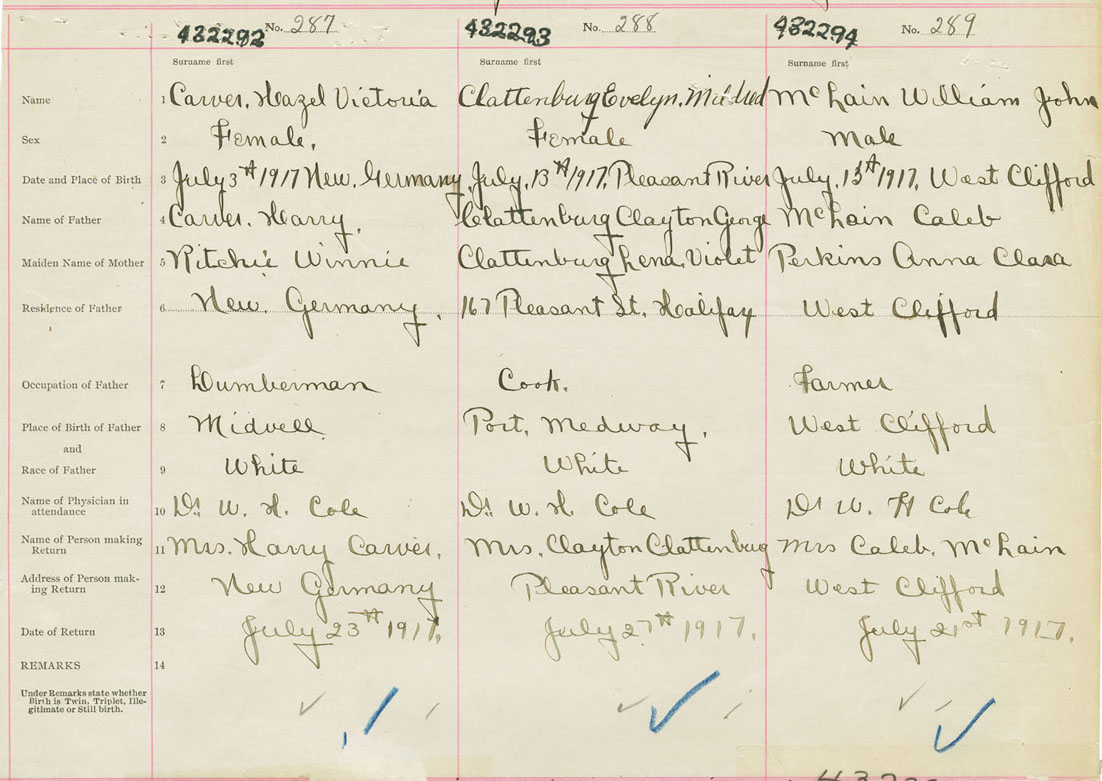 432292 No. 287 432293 No. 288 432294 No. 289
Surname first Surname first Surname first
Name 1 Carver, Hazel Victoria Clattenburg Evelyn, Mildred McLain William John
Sex 2 Female, Female Male
Date and Place of Birth 3 July 3th 1917 New, Germany, July, 13th 1917, Pleasant River July, 13th 1917, West Clifford
Name of Father 4 Carver, Harry, Clattenburg Clayton George McLain Caleb
Maiden Name of Mother 5 Ritchie Winnie Clattenburg Lena, Violet Perkins Anna Clara
Residence of Father 6 New, Germany, 167 Pleasant St, Halifax West Clifford
Occupation of Father 7 Lumberman Cook. Farmer
Place of Birth of Father 8 Midvell Port, Medway, West Clifford
and
Race of Father 9 White White White
Name of Physician in
attendance 10 Dr. W. H. Cole Dr. W. H. Cole Dr W. H Cole
Name of Person making
Return 11 Mrs. Harry Carver, Mrs, Clayton Clattenburg Mrs Caleb, McLain
Address of Person mak-
ing Return 12 New Germany Pleasant River West Clifford
Date of Return 13 July 23th 1917, July 27th 1917, July 21st 1917,
REMARKS 14
Under Remarks state whether
Birth is Twin, Triplet, Ille-
gitimate or Still birth.